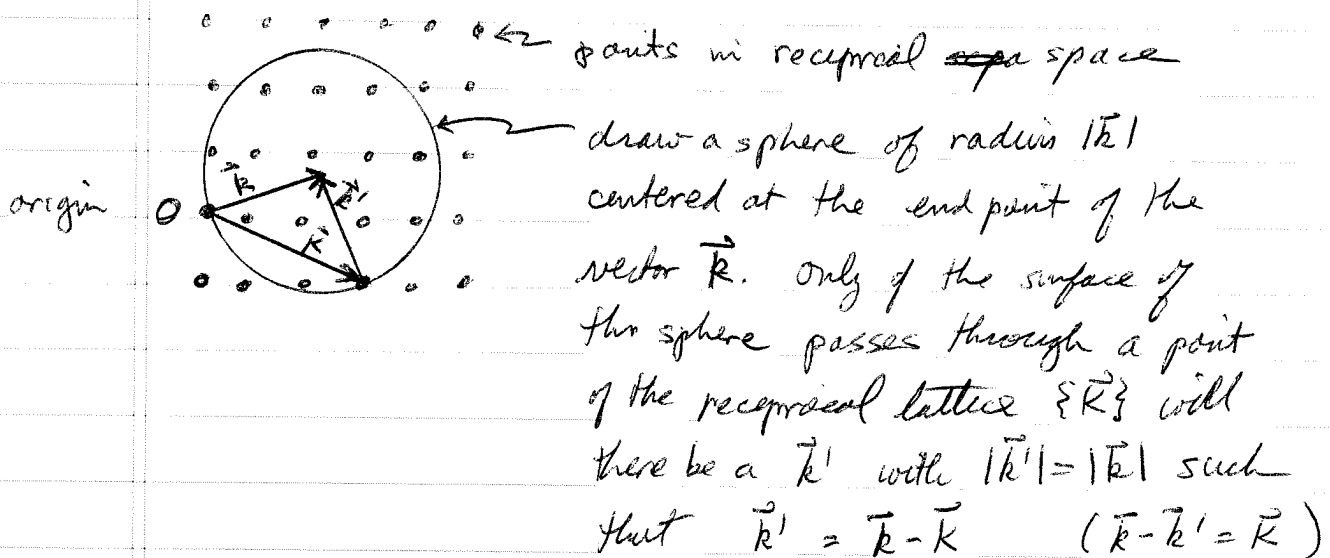 points in reciprocal space
draw a sphere of radius |k⃗|
centered at the end point of the
vector k⃗. Only if the surface of
this sphere passes through a point
of the reciprocal lattice {K⃗} will
there be a k⃗' with |k⃗'|=|k⃗| such
that k⃗' = k⃗-K⃗ (k⃗-k⃗' = K⃗)
origin O
k⃗
k⃗'
K⃗